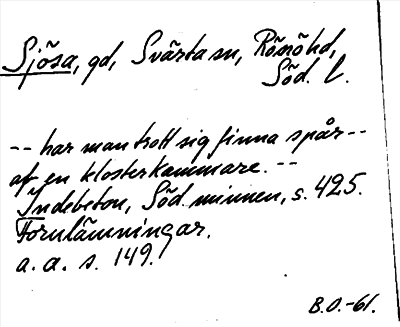 Sjösa, gd, Svärta sn, Rönöhd,
Söd. l.
-- har man trott sig finna spår --
af en klosterkammare. --
Indebetou, Söd. minnen, s. 425.
Fornlämningar.
a. a. s. 149.
B.O.-61.